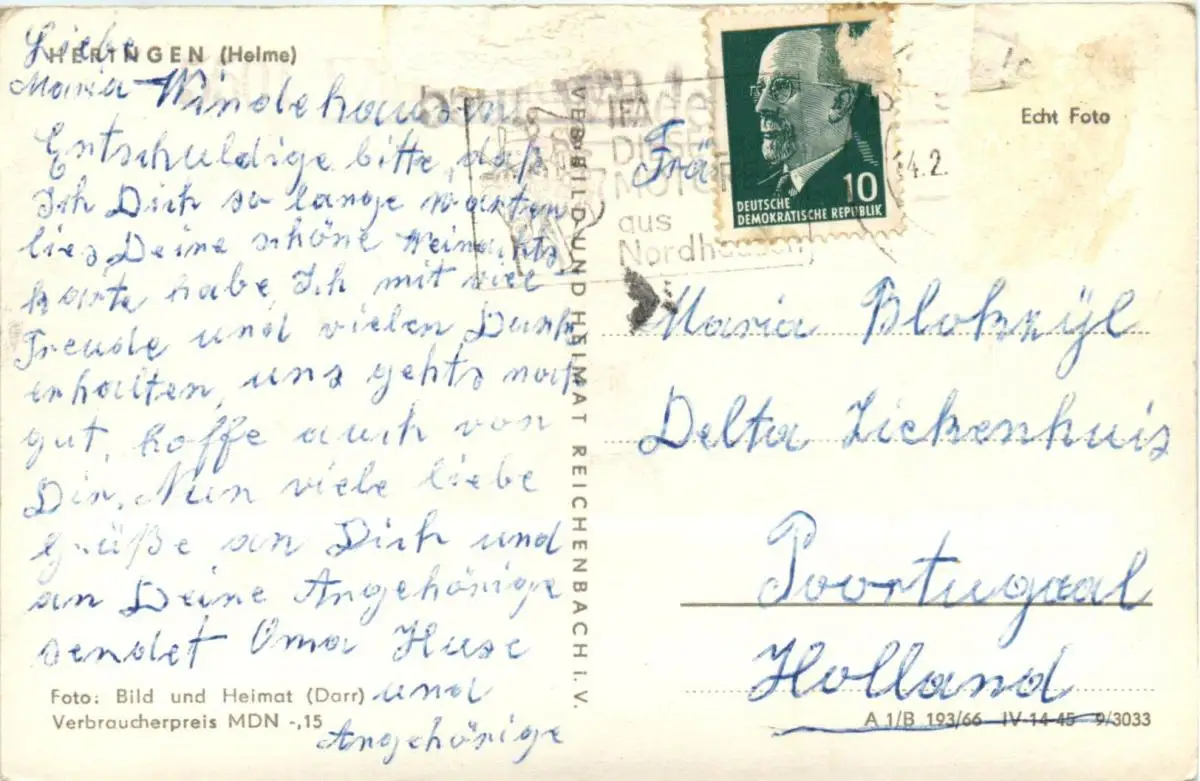 HERINGEN (Helme)
Liebe
Maria Windehausen
Entschuldige bitte, daß
Ich Dich so lange warten
lies, Deine schöne Weinachts
karte habe, Ich mit viel
Freude und vielen Dank
erhalten, uns gehts noch
gut, hoffe auch von
Dir, Nun viele liebe
Grüße an Dich und
an Deine Angehörige
sendet Oma Huse
und
Angehörige
Foto: Bild und Heimat (Darr)
Verbraucherpreis MDN -,15
VEB BILD UND HEIMAT REICHENBACH I. V.
IFA
aus
Nordhausen
14.2.
10
DEUTSCHE
DEMOKRATISCHE REPUBLIK
Echt Foto
Frä
Maria Blokzyl
Delta Ziekenhuis
Poortugaal
Holland
A 1/B 193/66 IV-14-45 9/3033